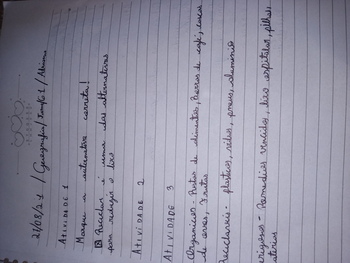 24/08/21 / Geografia / Turma 61 / Aluna
ATIVIDADE 1
Marque a alternativa correta!
B Reciclar é uma das alternativas
para reduzir o lixo
ATIVIDADE 2
ATIVIDADE 3
Orgânicos - Restos de alimentos, Borras de café, cascas
de ovos, frutas
Recicláveis - plásticos, vidros, pneus, alumínio
Perigosos - Remédios vencidos, lixo hospitalar, pilhas,
baterias